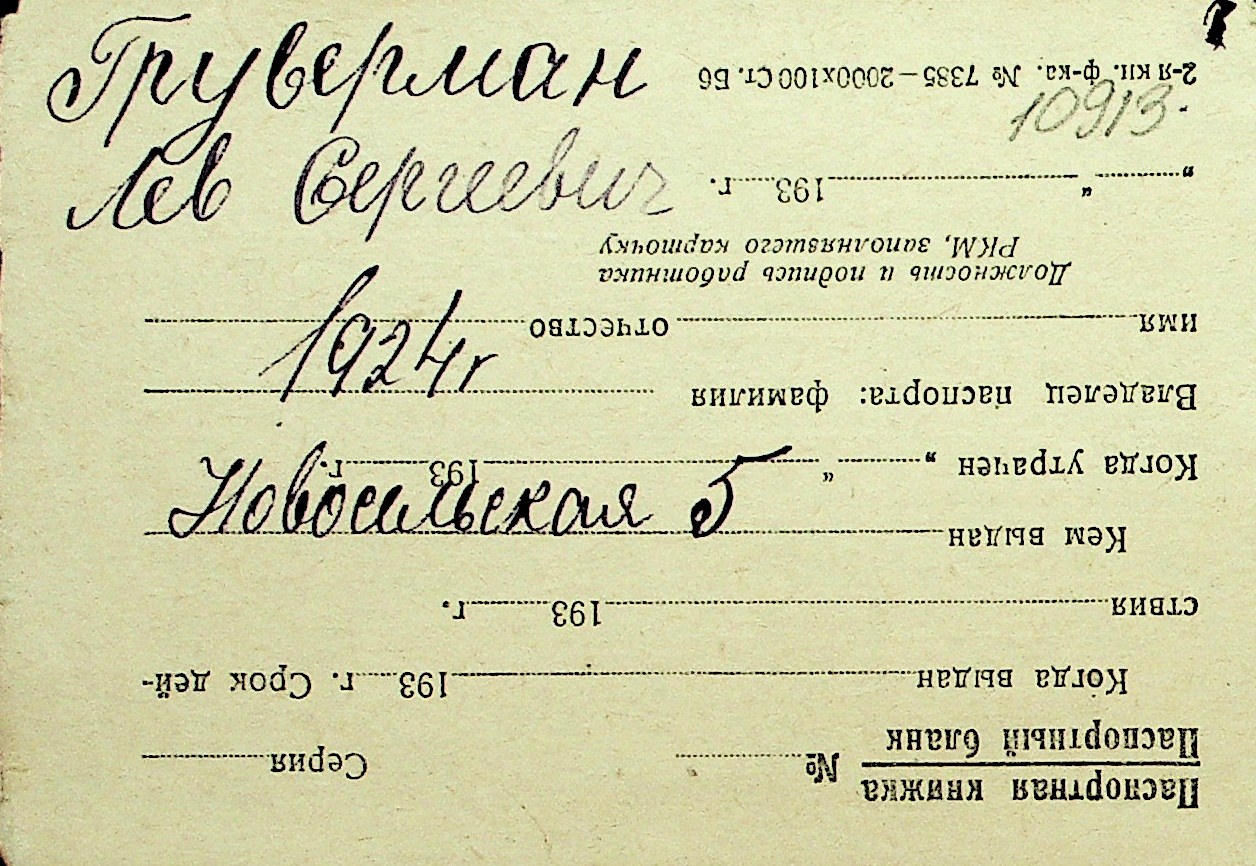 Груверман
10913
Лев Сергиевич
1924 г
Новосильская 5
Паспортная книжка
Паспортный бланк
№ Серия
Когда выдан 193 г. Срок дей-
ствия 193 г.
Кем выдан
Когда утрачен „ “ 193 г.
Владелец паспорта: фамилия
имя отчество
Должность и подпись работника
РКМ, заполнявшего карточку
„ “ 193 г.
2-я кн. ф-ка. № 7385—2000х100 Ст. Бб